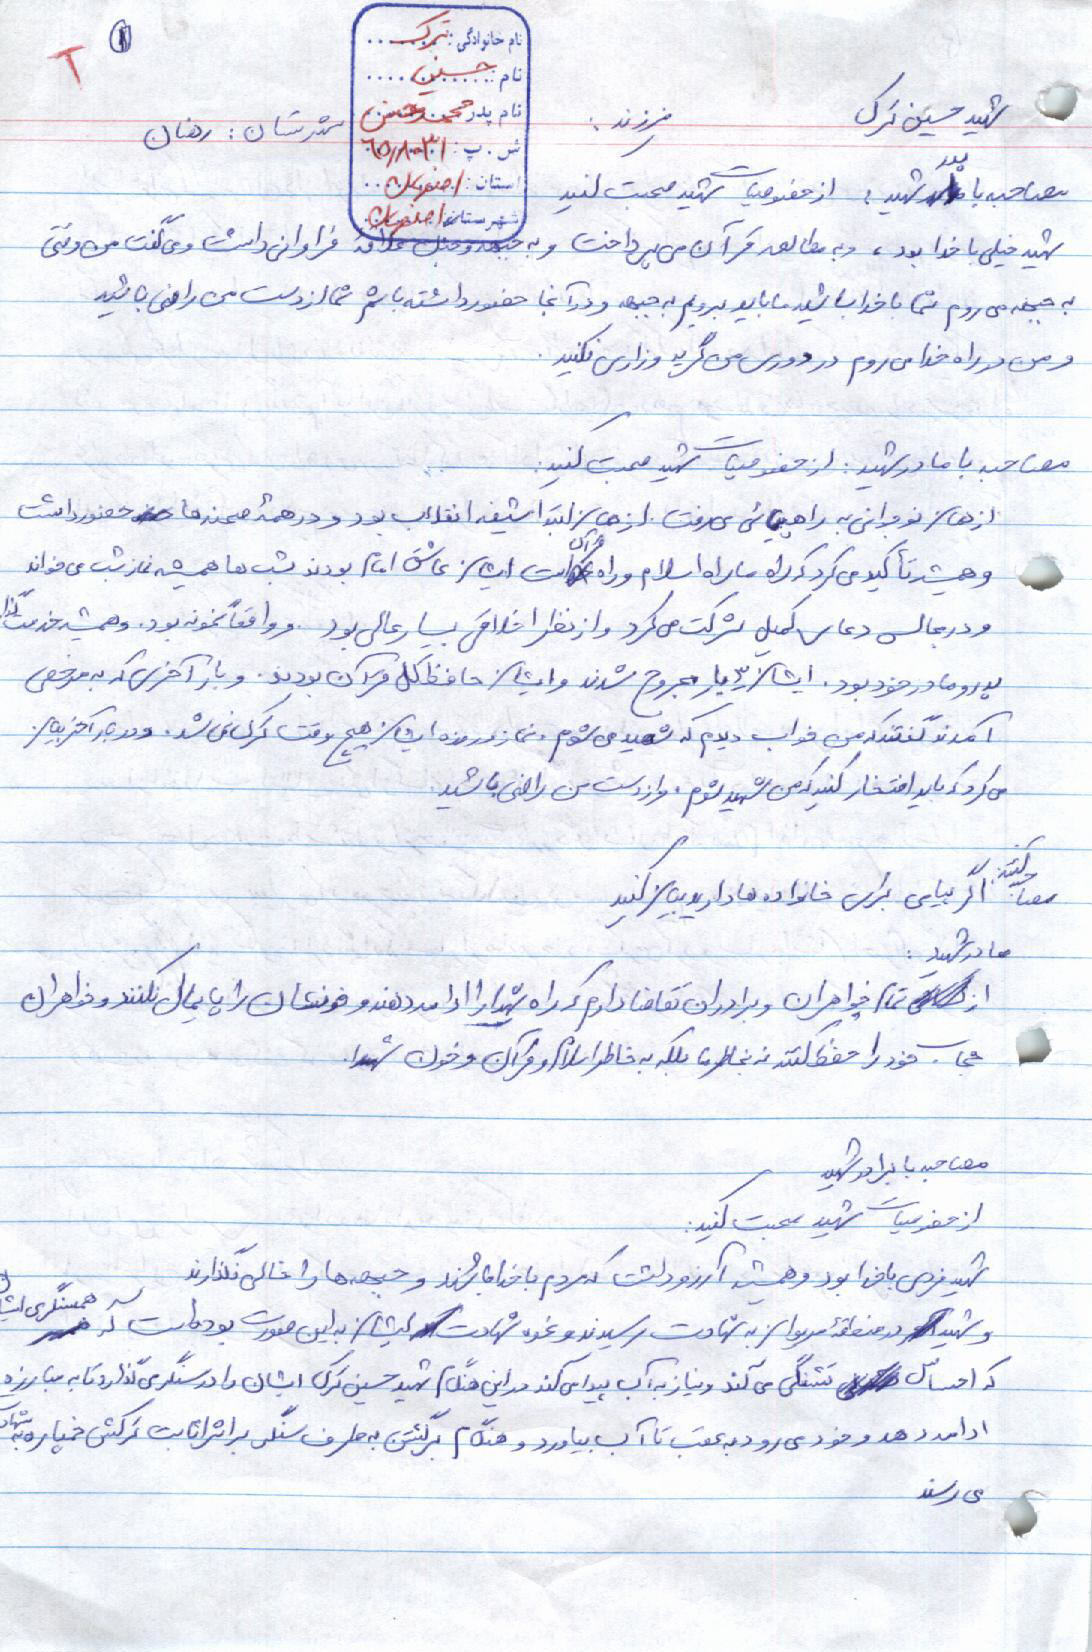 ۱
نام خانوادگی: ترک
نام: حسین
نام پدر: محمدحسن
ش . پ: ۶۵۱۸۰۳۱
استان: اصفهان
شهرستان: اصفهان
شهید حسین ترک فرزند: شهرستان: رهنان
مصاحبه با پدر شهید: از خصوصیات شهید صحبت کنید
شهید خیلی با خدا بود، و به مطالعه قرآن می پرداخت و به جبهه و جنگ علاقه فراوانی داشت و می گفت من وقتی
به جبهه می روم شما با خدا باشید ما باید برویم به جبهه و در آنجا حضور داشته باشم شما از دست من راضی باشید
و من در راه خدا می روم در دوری من گریه و زاری نکنید.
مصاحبه با مادر شهید: از خصوصیات شهید صحبت کنید:
از همان نوجوانی به راهپیمائی می رفت. از همان ابتدا شیفه انقلاب بود و در همه صحنه ها حضور داشت
و همیشه تأکید می کرد که راه ما راه اسلام و راه قرآن است ایشان عاشق امام بودند شب ها همیشه نماز شب می خواند
و در مجالس دعای کمیل شرکت می کرد و از نظر اخلاقی بسیار عالی بود. و واقعاً نمونه بود. و همیشه خدمت گذار
پدر و مادر خود بود. ایشان ۳ بار مجروح شدند و ایشان حافظ کل قرآن بودند. و بار آخری که به مرخصی
آمدند گفتند که من خواب دیدم که شهید می شوم. نماز و روزه ایشان هیچ وقت ترک نمی شد. و در بار آخر بیان
می کرد که باید افتخار کنید که من شهید شوم. و از دست من راضی باشید.
مصاحبه کننده: اگر پیامی برای خانواده ها دارید بیان کنید
مادر شهید:
از تمام خواهران و برادران تقاضا دارم که راه شهدا را ادامه دهند و خونشان را پایمال نکنند و خواهران
حجاب خود را حفظ کنند نه بخاطر ما بلکه به خاطر اسلام و قرآن و خون شهدا.
مصاحبه با برادر شهید
از خصوصیات شهید صحبت کنید:
شهید فردی با خدا بود و همیشه آرزو داشت که مردم با خدا باشند و جبهه ها را خالی نگذارند
و شهید در منطقه مریوان به شهادت رسیدند و نحوه شهادت ایشان به این صورت بوده است که همسنگری ایشان
که احساس تشنگی می کند و نیاز به آب پیدا می کند در این هنگام شهید حسین ترک ایشان را در سنگر می گذارد تا به مبارزه
ادامه دهد و خود می رود به عقب تا آب بیاورد و هنگام برگشتن به طرف سنگر بر اثر اثابت ترکش خمپاره به شهادت
می رسند